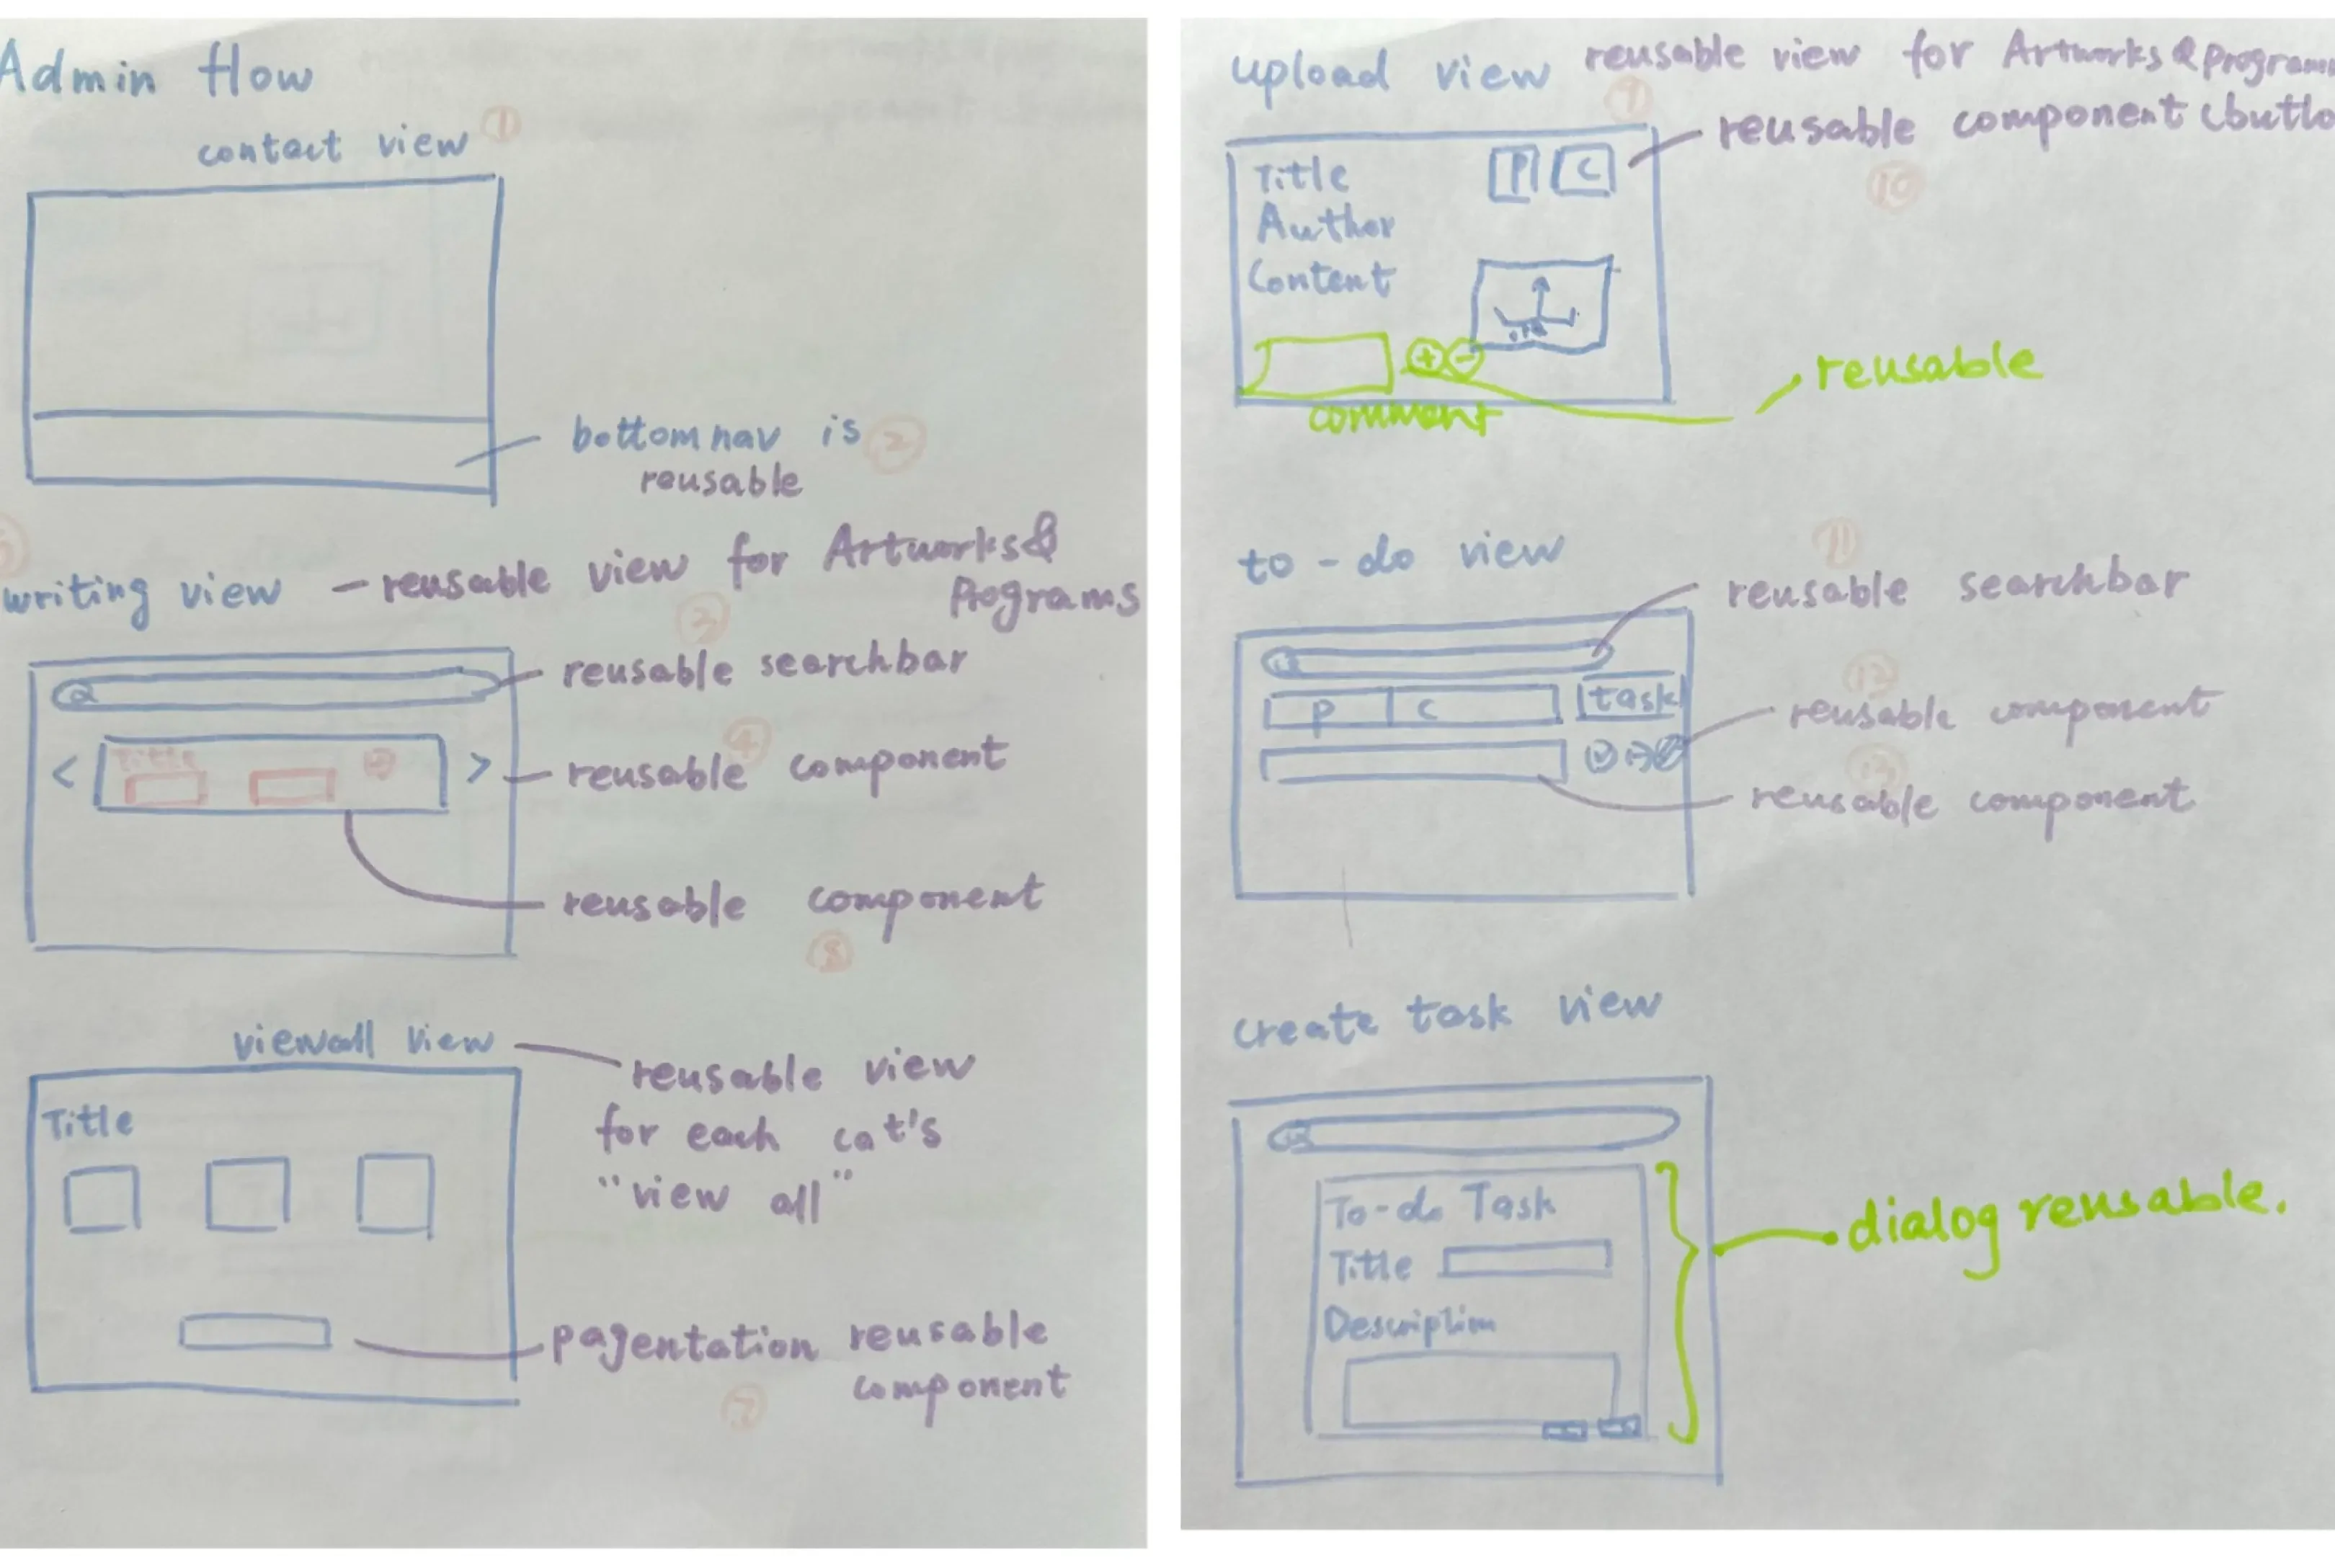 Admin flow
contact view ①
bottom nav is ②
reusable
writing view - reusable view for Artworks &
Programs
③
reusable searchbar
④
< Title > reusable component
reusable component
⑧
viewall view
reusable view
for each cat's
"view all"
Title
pagentation reusable
component
⑦
upload view reusable view for Artworks &
⑨
reusable component
⑩
Title P C
Author
Content
+ -
reusable
comment
to-do view
⑪
reusable searchbar
P C task
⑫
reusable component
⑬
reusable component
create task view
To-do Task
Title
Description
dialog reusable.